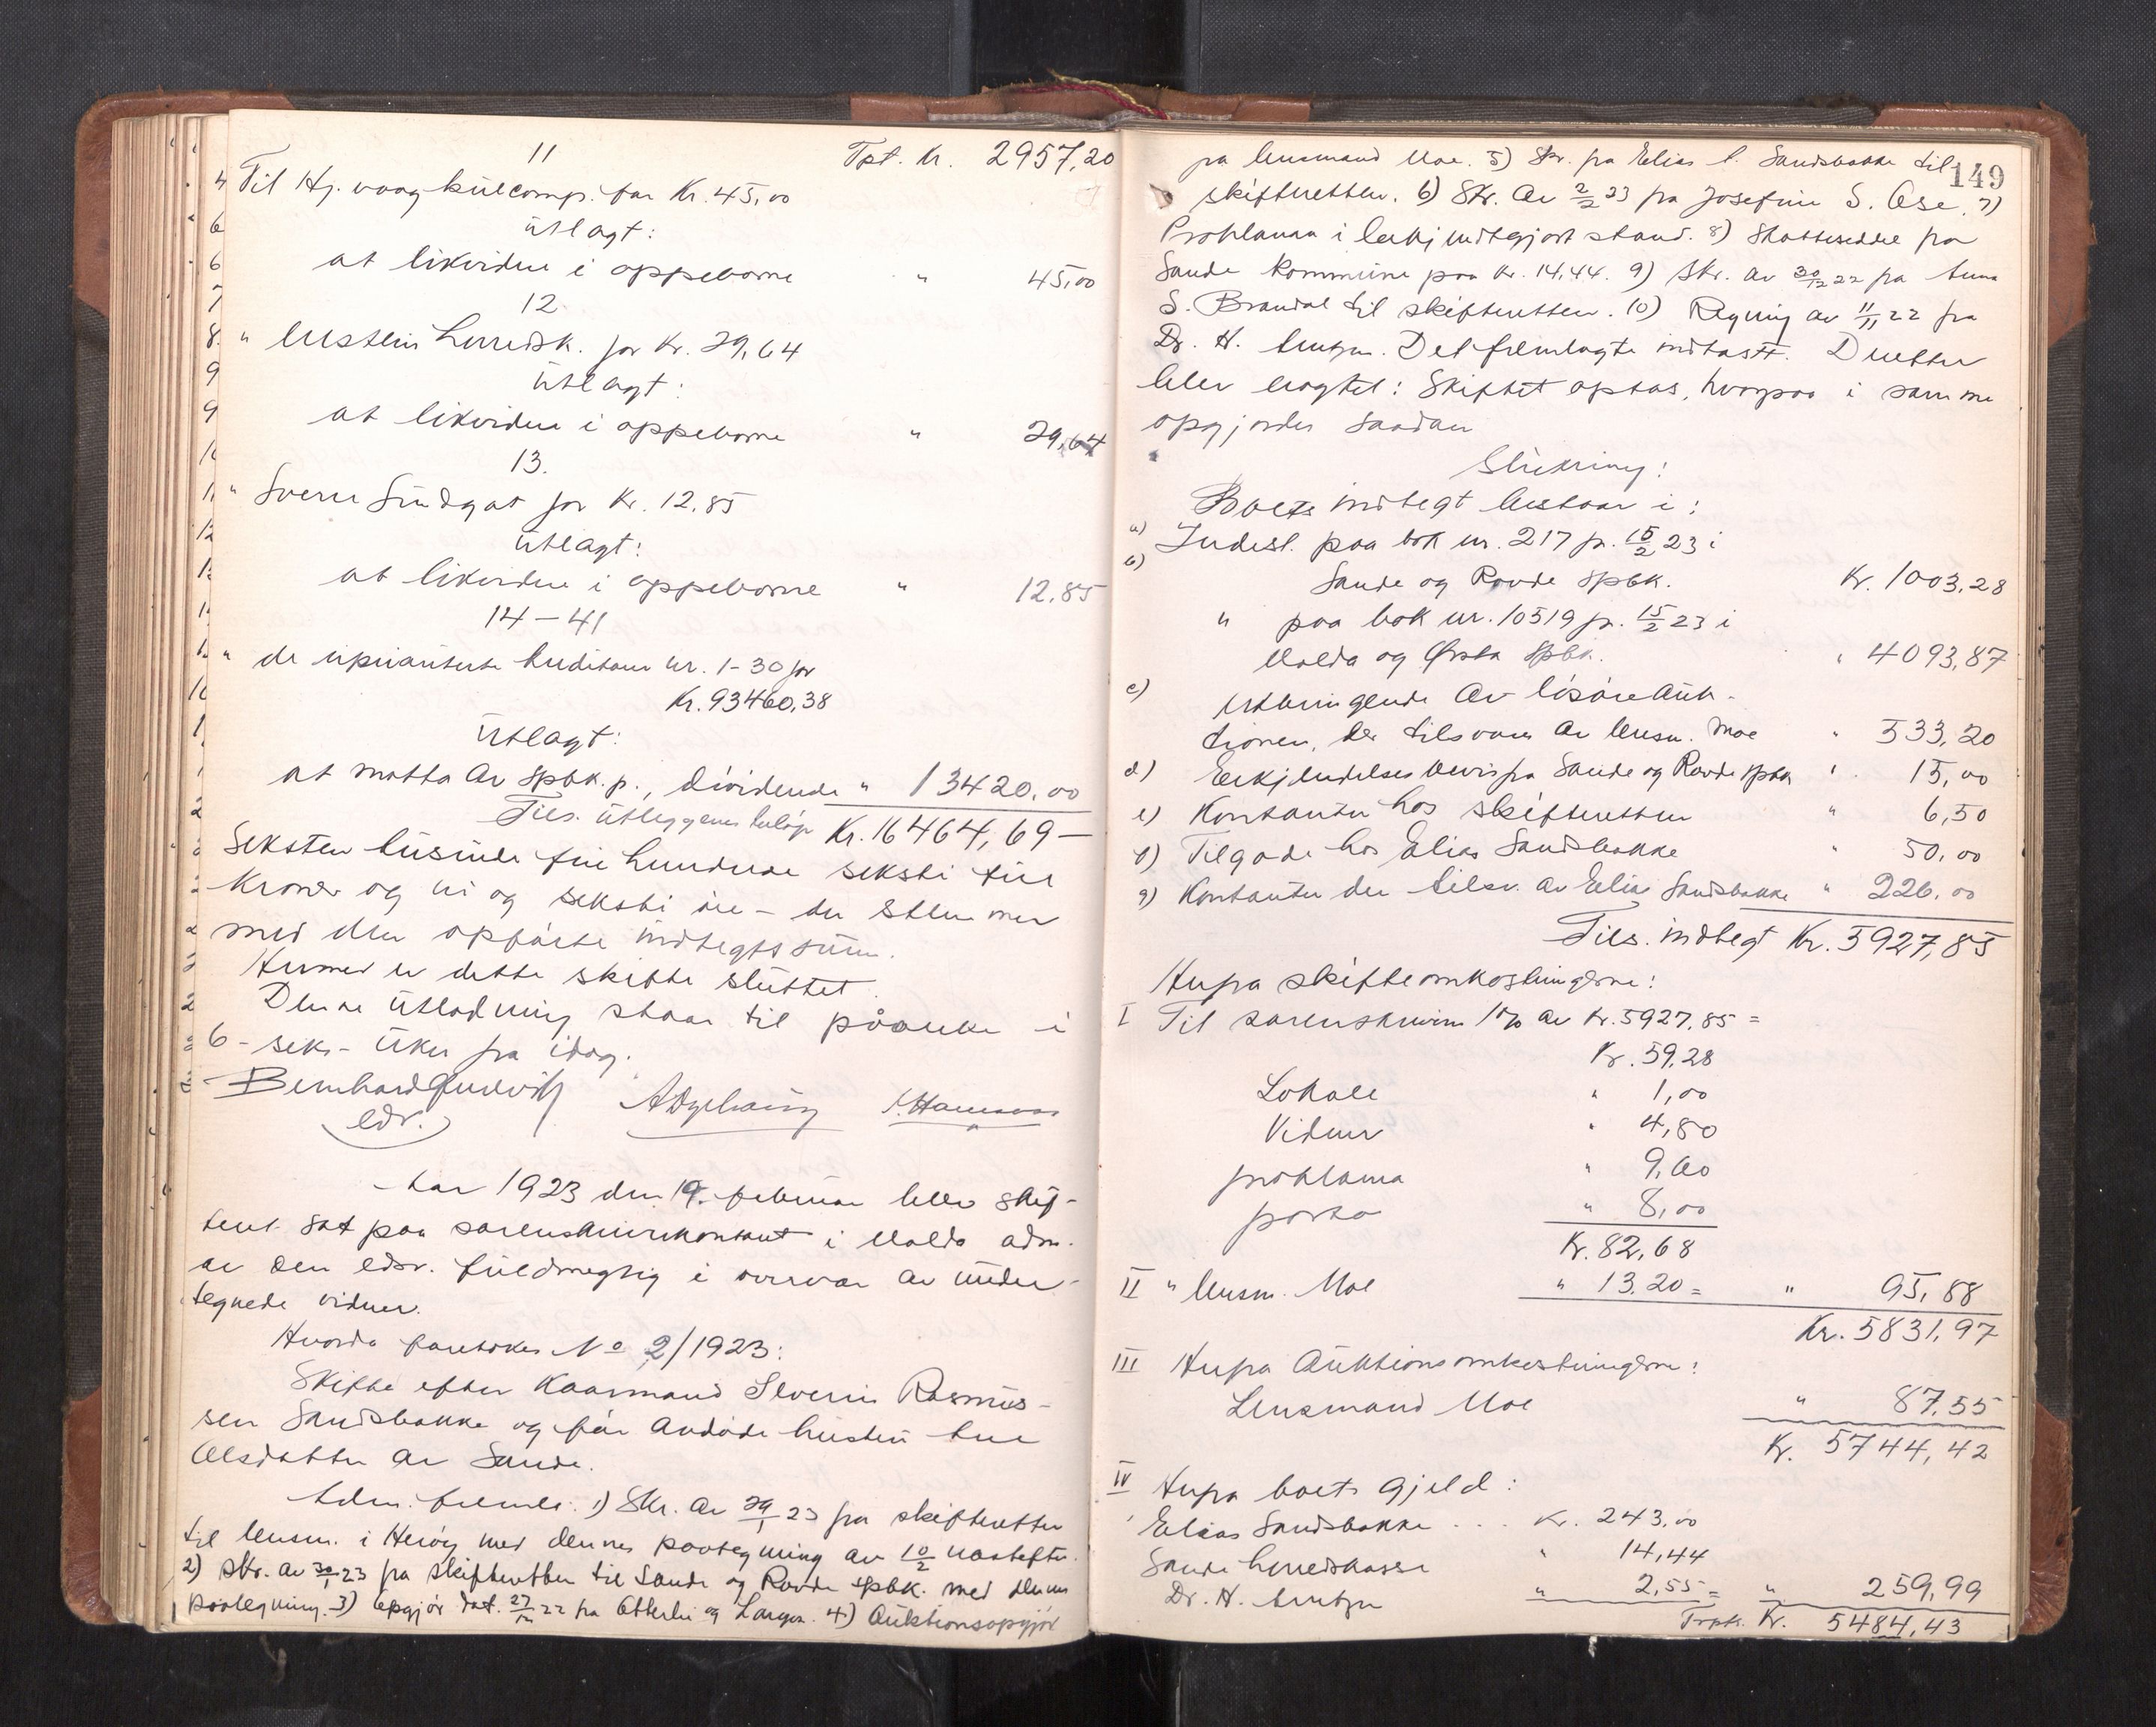 11
Tpt. Kr. 2957,20
Til Hj. vaag kulcomp. for Kr. 45,00
Utlagt:
at likvidere i oppeborne " 45,00
12
" Austein herredsk. for Kr. 29,64
Utlagt:
at likvidere i oppeborne " 29,64
13.
" Sverre Sundgot for Kr. 12,85
Utlagt:
at likvidere i oppeborne " 12,85
14-41
" de upriviterte kreditorer nr. 1-30 for
Kr. 93460,38
Utlagt:
at motta av spbk. p., dividende " 13420,00
Tils. utleggenes beløp Kr. 16464,69 —
Seksten tusinde fire hundrede seksti fire
kroner og ni og seksti øre - der stemmer
med den opførte indtegtssum.
Hermed er dette skifte sluttet.
Denne utlodning staar til påanke i
6 - seks - uker fra idag.
edr.
Aar 1923 den 19. februar blev skif-
teret sat paa sorenskriverkontoret i Volda adm.
av den edsv. fuldmegtig i overvær av under-
tegnede vidner.
Hvorda foretokes No 2/1923:
Skifte efter Kaarmand Severin Rasmus-
sen Sandsbakke og før avdøde hustru Ane
Olsdatter av Sande.
Adm. fremla. 1) Skr. av 29/1 23 fra skifteretten
til lensm. i Herøy med dennes paategning av 10/2 næstefter.
2) Skr. av 30/1 23 fra skifteretten til Sande og Rovde spbk. med dennes
paategning. 3) Opgjør dat. 27/12 22 fra Otterlei og Largen. 4) Auktionsopgjør
149
fra lensmand Moe. 5) Skr. fra Elias S. Sandsbakke til
skifteretten. 6) Skr. av 2/2 23 fra Josefine S. Ose. 7)
Proklama i bekjendtgjort stand. 8) Skatteseddel fra
Sande kommune paa Kr. 14,44. 9) Skr. av 30/12 22 fra Anna
S. Brandal til skifteretten. 10) Regning av 11/11 22 fra
Dr. H. Arntzen. Det fremlagte indtast. Derefter
blev eragtet: Skiftet optas, hvorpaa i samme
opgjordes saadan
Slutning:
Boets indtegt bestaar i:
a) Indest. paa bok nr. 217 pr. 15/2 23 i
Sande og Rovde spbk. Kr. 1003,28
b) " paa bok nr. 10519 pr. 15/2 23 i
Volda og Ørsta spbk. " 4093,87
c) Utbringende av løsøreauk-
tionen, der tilsvares av lensm. Moe " 533,20
d) Erkjendelsesbevis fra Sande og Rovde spbk " 15,00
e) Kontanter hos skifteretten " 6,50
f) Tilgode hos Elias Sandsbakke " 50,00
g) Kontanter der tilsv. av Elias Sandsbakke " 226,00
Tils. indtegt Kr. 5927,85
Herfra skifteomkostningerne:
I Til sorenskriveren 1% av Kr. 5927,85 =
Kr. 59,28
Lokale " 1,00
Vidner " 4,80
proklama " 9,60
porto " 8,00
Kr. 82,68
II " lensm. Moe " 13,20 = " 95,88
Kr. 5831,97
III Herfra Auktionsomkostningerne:
Lensmand Moe " 87,55
Kr. 5744,42
IV Herfra boets gjeld:
Elias Sandsbakke ... Kr. 243,00
Sande herredskasse " 14,44
Dr. H. Arntzen " 2,55 = " 259,99
Trpt. Kr. 5484,43